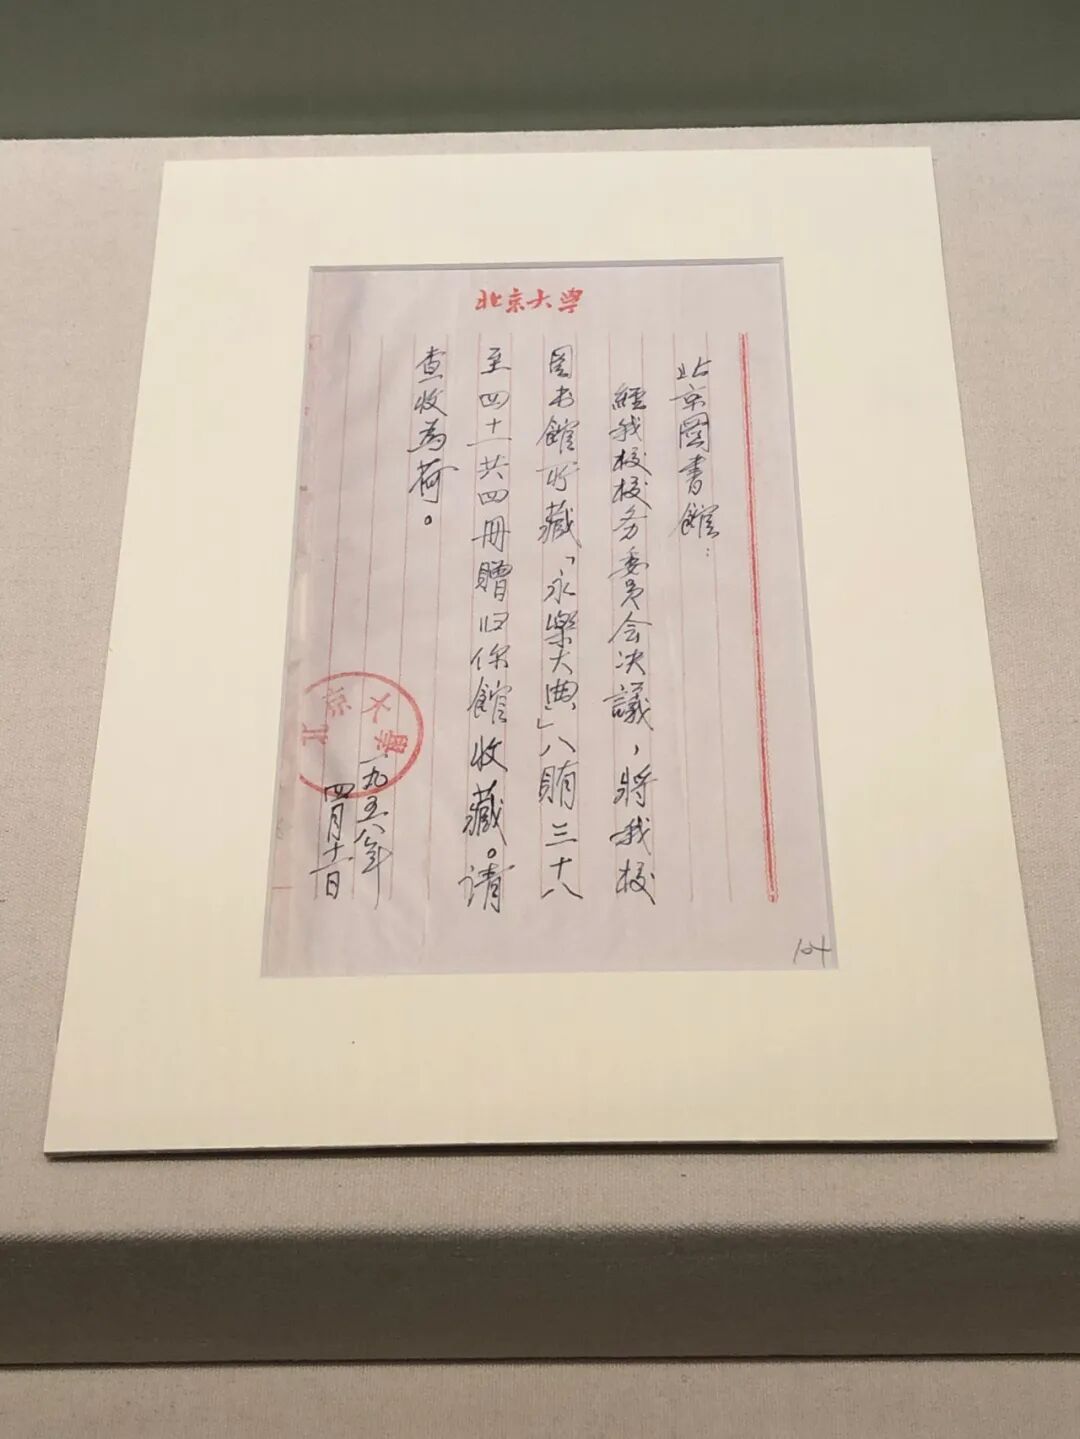 北京大學
北京图書館：
經我校校务委員会决議，將我校
图书館所藏「永樂大典」八賄三十八
至四十一共四冊贈归你館收藏。请
查收為荷。
一九五八年
四月十一日
北京大學
104